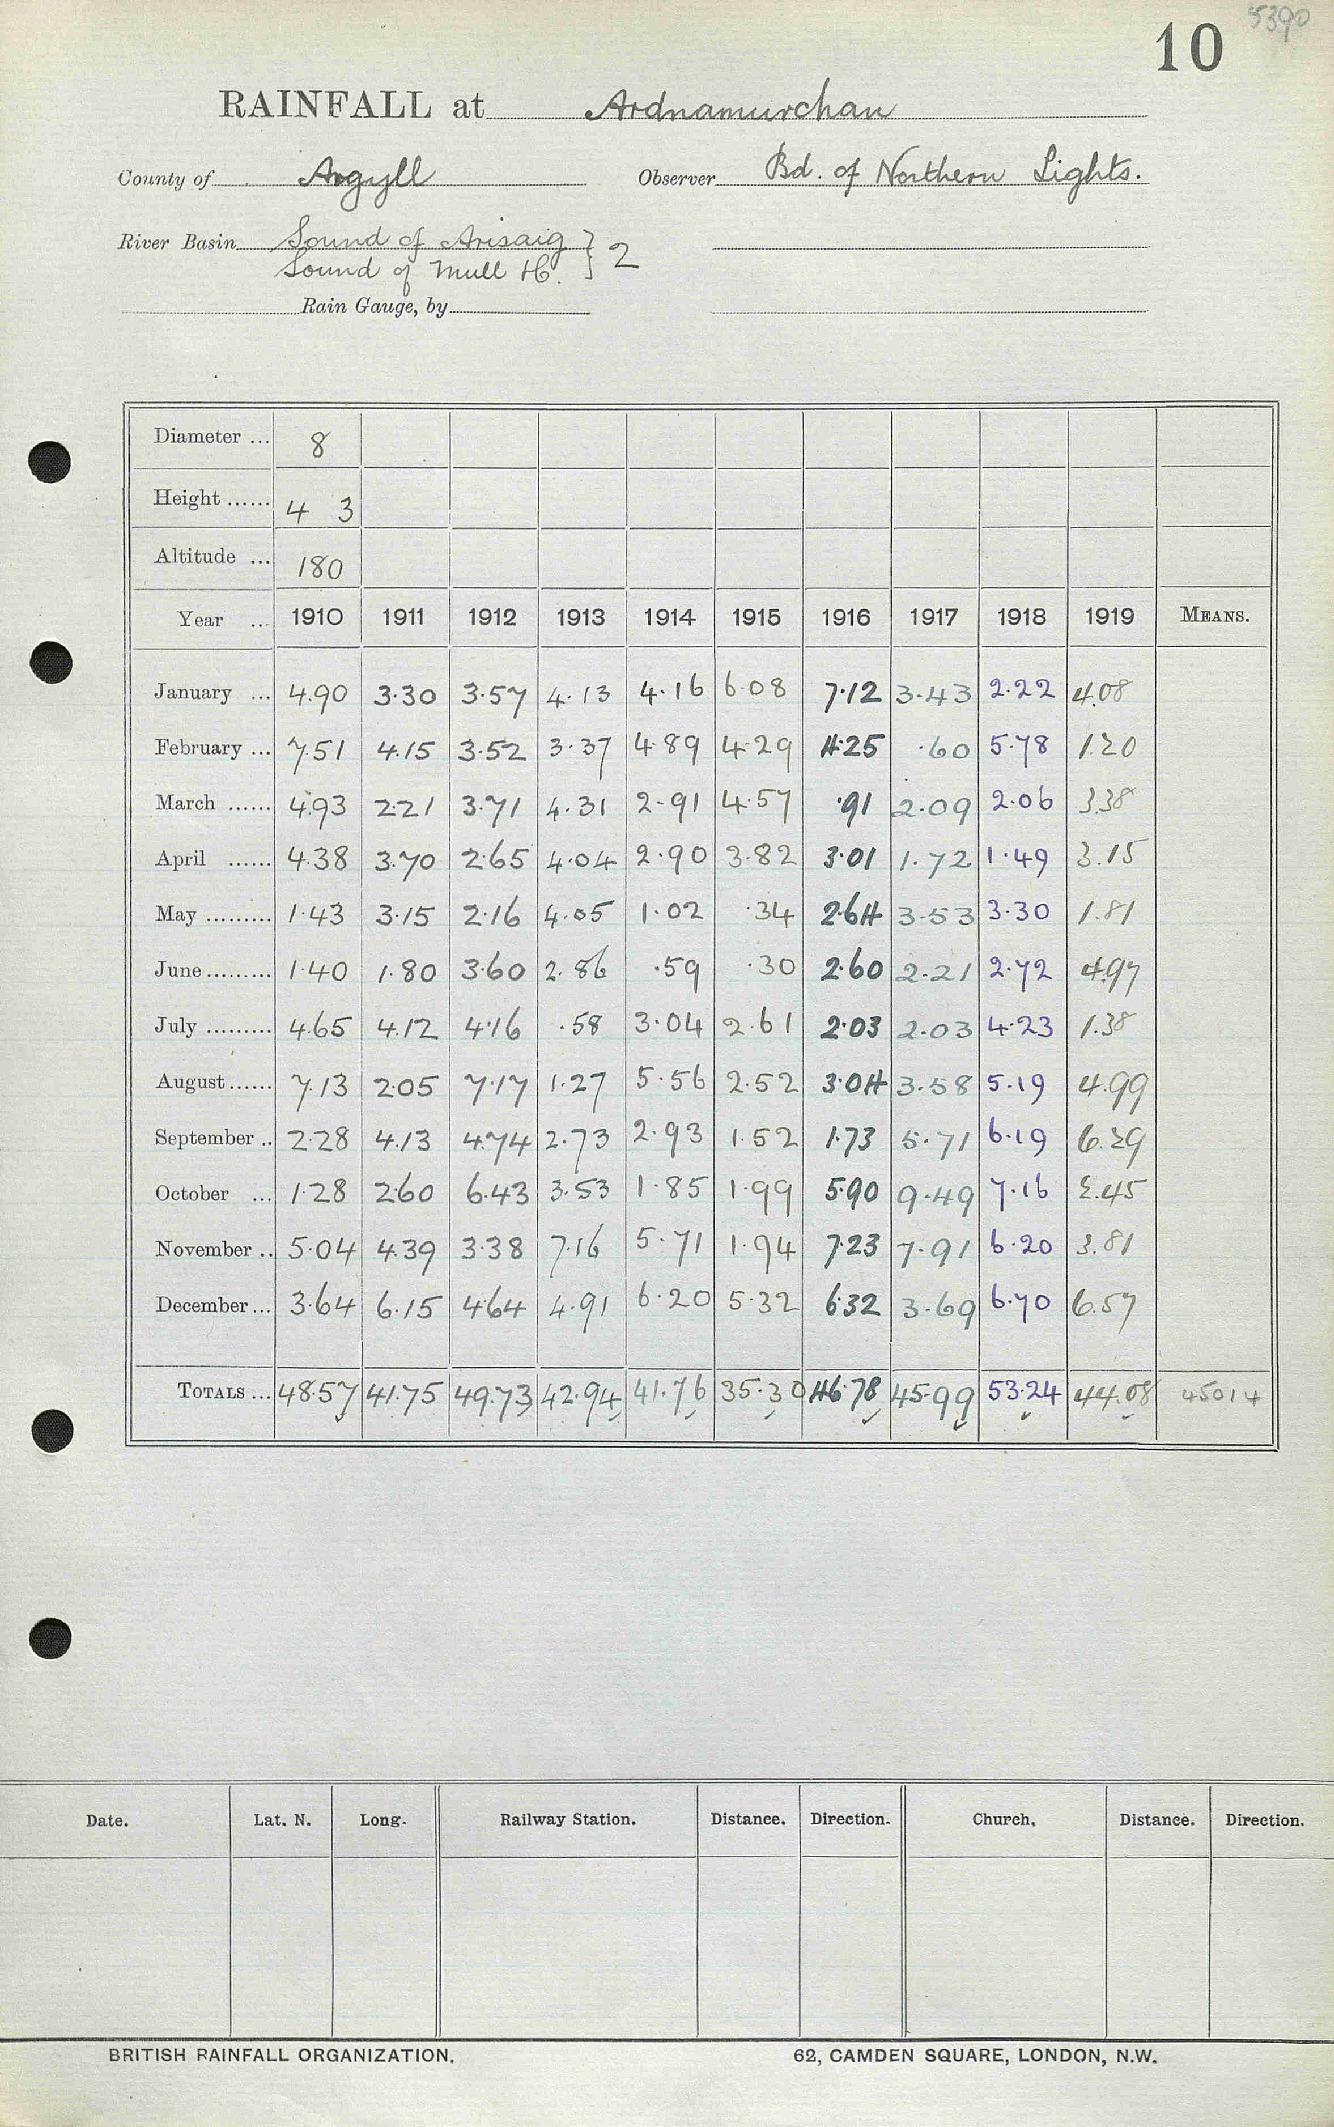 5390
10
RAINFALL at Ardnamurchan
County of Argyll Observer Bd. of Northern Lights.
River Basin Sound of Arisaig } 2
Sound of Mull H.
Rain Gauge, by
Diameter ... 8
Height ...... 4 3
Altitude ... 180
Year ... 1910 1911 1912 1913 1914 1915 1916 1917 1918 1919 MEANS.
January ... 4.90 3.30 3.57 4.13 4.16 6.08 7.12 3.43 2.22 4.08
February ... 7.51 4.15 3.52 3.37 4.89 4.29 4.25 .60 5.78 1.20
March ...... 4.93 2.21 3.71 4.31 2.91 4.57 .91 2.09 2.06 3.38
April ...... 4.38 3.70 2.65 4.04 2.90 3.82 3.01 1.72 1.49 3.15
May ......... 1.43 3.15 2.16 4.05 1.02 .34 2.64 3.53 3.30 1.81
June ......... 1.40 1.80 3.60 2.86 .59 .30 2.60 2.21 2.72 4.97
July ......... 4.65 4.12 4.16 .58 3.04 2.61 2.03 2.03 4.23 1.38
August ...... 7.13 2.05 7.17 1.27 5.56 2.52 3.04 3.58 5.19 4.99
September .. 2.28 4.13 4.74 2.73 2.93 1.52 1.73 5.71 6.19 6.29
October ... 1.28 2.60 6.43 3.53 1.85 1.99 5.90 9.49 7.16 2.45
November .. 5.04 4.39 3.38 7.16 5.71 1.94 7.23 7.91 6.20 3.81
December ... 3.64 6.15 4.64 4.91 6.20 5.32 6.32 3.69 6.70 6.57
TOTALS ... 48.57 41.75 49.73 42.94 41.76 35.30 46.78 45.99 53.24 44.08 45014
Date. Lat. N. Long. Railway Station. Distance. Direction. Church. Distance. Direction.
BRITISH RAINFALL ORGANIZATION. 62, CAMDEN SQUARE, LONDON, N.W.